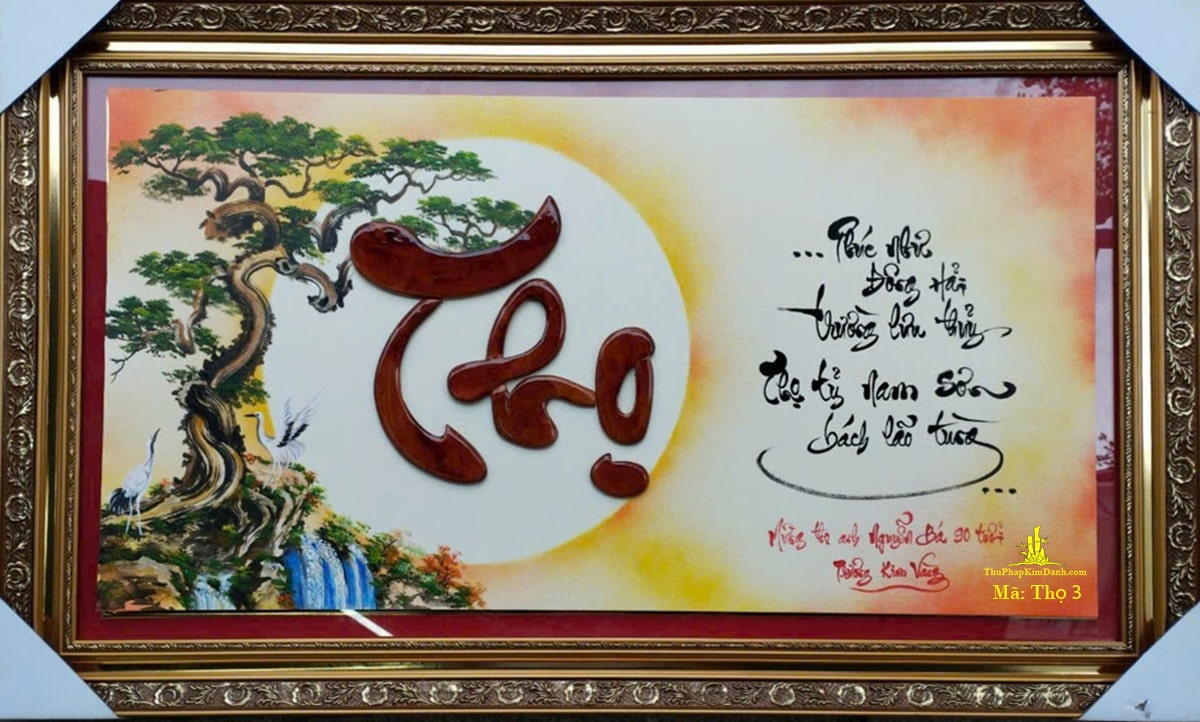 Thọ
... Phúc như
Đông Hải
trường lưu thủy
Thọ tỷ Nam Sơn
bách lão tùng
...
Mừng thọ anh Nguyễn Bá 90 tuổi
Kim
ThuPhapKimDanh.com
Mã: Thọ 3